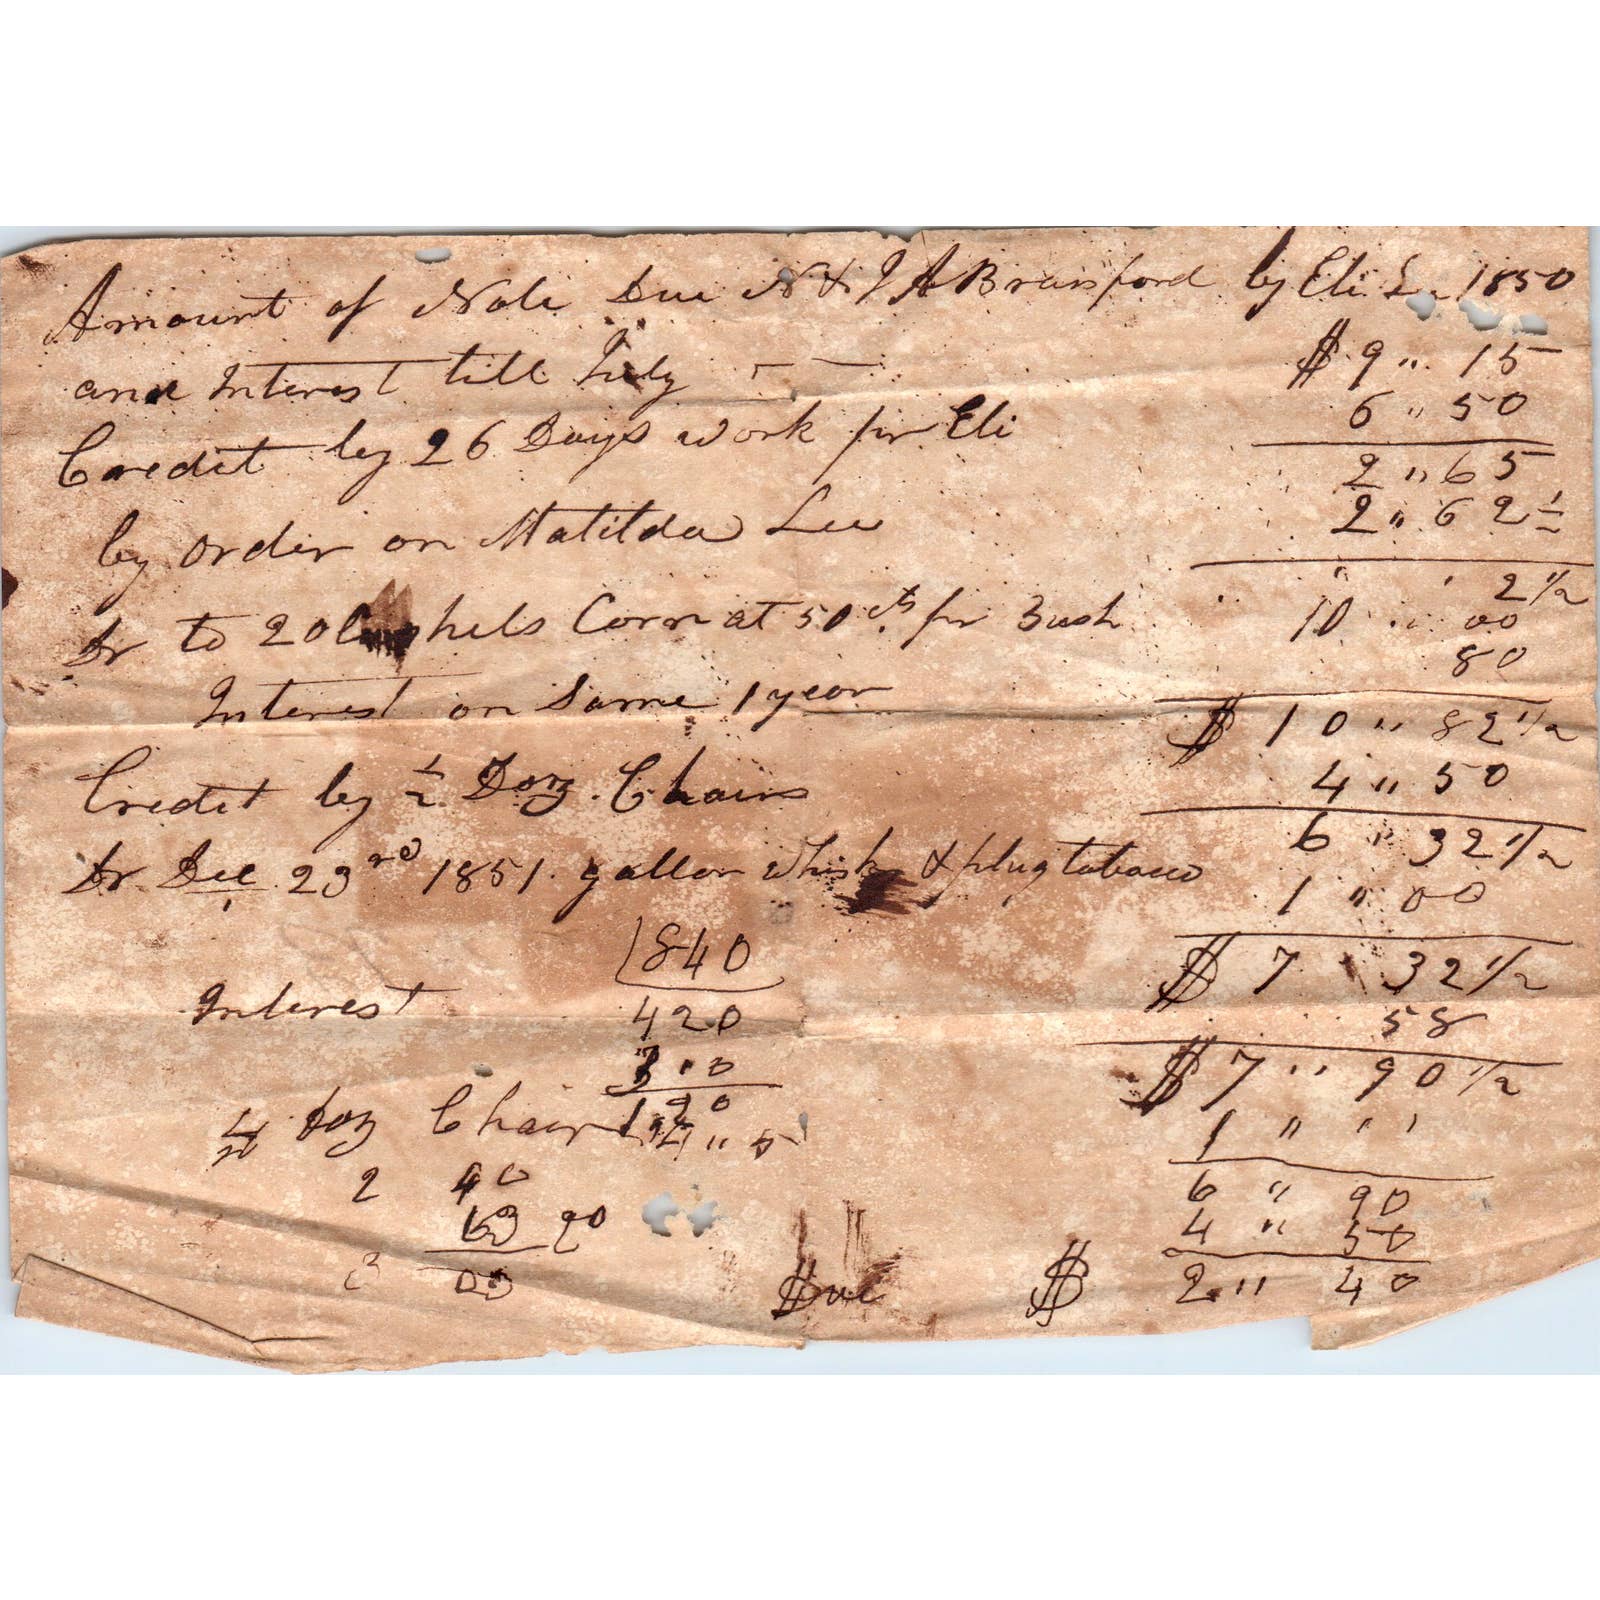 Amount of Note Due N & J A Bransford by Eli L 1850
and Interest till July $ 9 " 15
Credit by 26 Days work pr Eli 6 " 50
2 " 65
by order on Matilda Lee 2 " 62 1/2
" ' 2 1/2
Dr to 20 hels Corn at 50 cts pr Bush 10 " 00
Interest on Same 1 year 80
$ 10 " 82 1/2
Credit by 1/2 Doz. Chairs 4 " 50
6 " 32 1/2
Dr Dec 23rd 1851. gallon Whisk & plug tobacco 1 " 00
840
$ 7 32 1/2
Interest 420 58
$ 7 " 90 1/2
120
Doz Chair 1 " ' '
2 40 6 " 90
63 90 4 " 50
3 03 Due $ 2 " 40